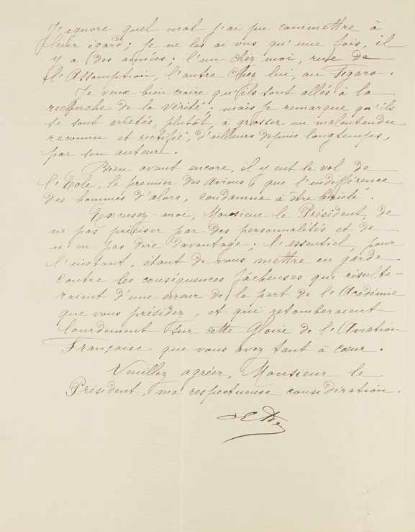 J'ignore quel mal j'ai pu commettre à
leur égard ; je ne les ai vus qu'une fois, il
y a des années ; l'un chez moi, rue de
l'Assomption, l'autre chez lui, au Figaro.
Je veux bien croire qu'ils sont allés à la
recherche de la vérité ; mais je remarque qu'ils
se sont arrêtés, plutôt, à grossir un malentendu
reconnu et rectifié, d'ailleurs depuis longtemps,
par son auteur.
Bien avant encore, il y eut le vol de
l'Eole, le premier des avions, que l'indifférence
des hommes d'alors, condamna à être
moi, Monsieur le Président, de
ne pas préciser par des personnalités et de
n'en pas dire davantage ; l'essentiel, pour
l'instant, étant de vous mettre en garde
contre les conséquences fâcheuses qui résulte-
raient d'une erreur de la part de l'Académie
que vous présidez, et qui retomberaient
lourdement sur cette Gloire de l'Aviation
Française que vous avez tant à cœur.
Veuillez agréer, Monsieur le
Président, ma respectueuse considération.